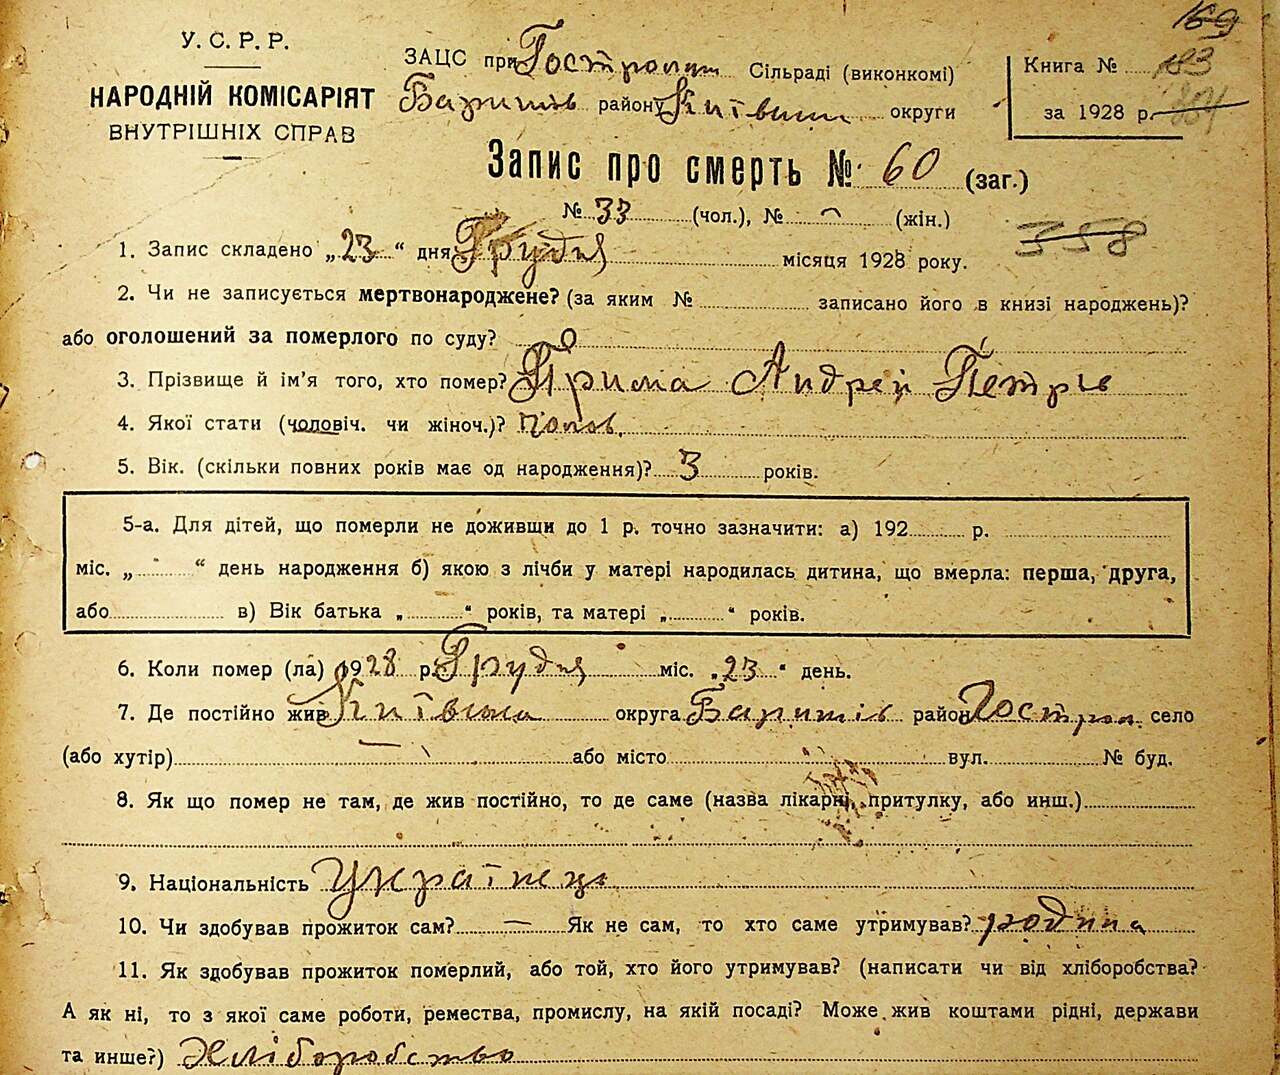 У. С. Р. Р.
НАРОДНІЙ КОМІСАРІЯТ
ВНУТРІШНІХ СПРАВ
ЗАЦС при Гостролуч Сільраді (виконкомі)
Баришів району Київськ округи
Книга № 193
за 1928 р.
169
Запис про смерть № 60 (заг.)
№ 33 (чол.), № (жін.)
358
1. Запис складено „23“ дня Грудня місяця 1928 року.
2. Чи не записується мертвонароджене? (за яким № записано його в книзі народжень)?
або оголошений за померлого по суду?
3. Прізвище й ім'я того, хто помер? Прима Андрей Петрів
4. Якої стати (чоловіч. чи жіноч.)? чолов.
5. Вік. (скільки повних років має од народження)? 3 років.
5-а. Для дітей, що померли не доживши до 1 р. точно зазначити: а) 192 р.
міс. „ “ день народження б) якою з лічби у матері народилась дитина, що вмерла: перша, друга,
або в) Вік батька „ “ років, та матері „ “ років.
6. Коли помер (ла) 1928 р. Грудня міс. „23“ день.
7. Де постійно жив Київська округа Баришів район Гострол. село
(або хутір) — або місто вул. № буд.
8. Як що помер не там, де жив постійно, то де саме (назва лікарні, притулку, або инш.)
9. Національність Українець
10. Чи здобував прожиток сам? — Як не сам, то хто саме утримував? родина
11. Як здобував прожиток померлий, або той, хто його утримував? (написати чи від хліборобства?
А як ні, то з якої саме роботи, ремества, промислу, на якій посаді? Може жив коштами рідні, держави
та инше?) Хліборобство